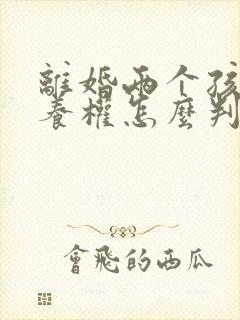 離婚兩个孩
養權怎麼判
會飛的西瓜